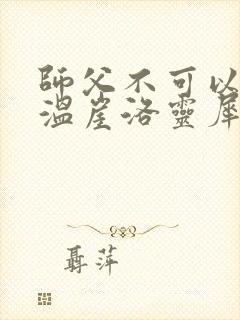 師父不可以
溫崖洛靈犀
聶萍